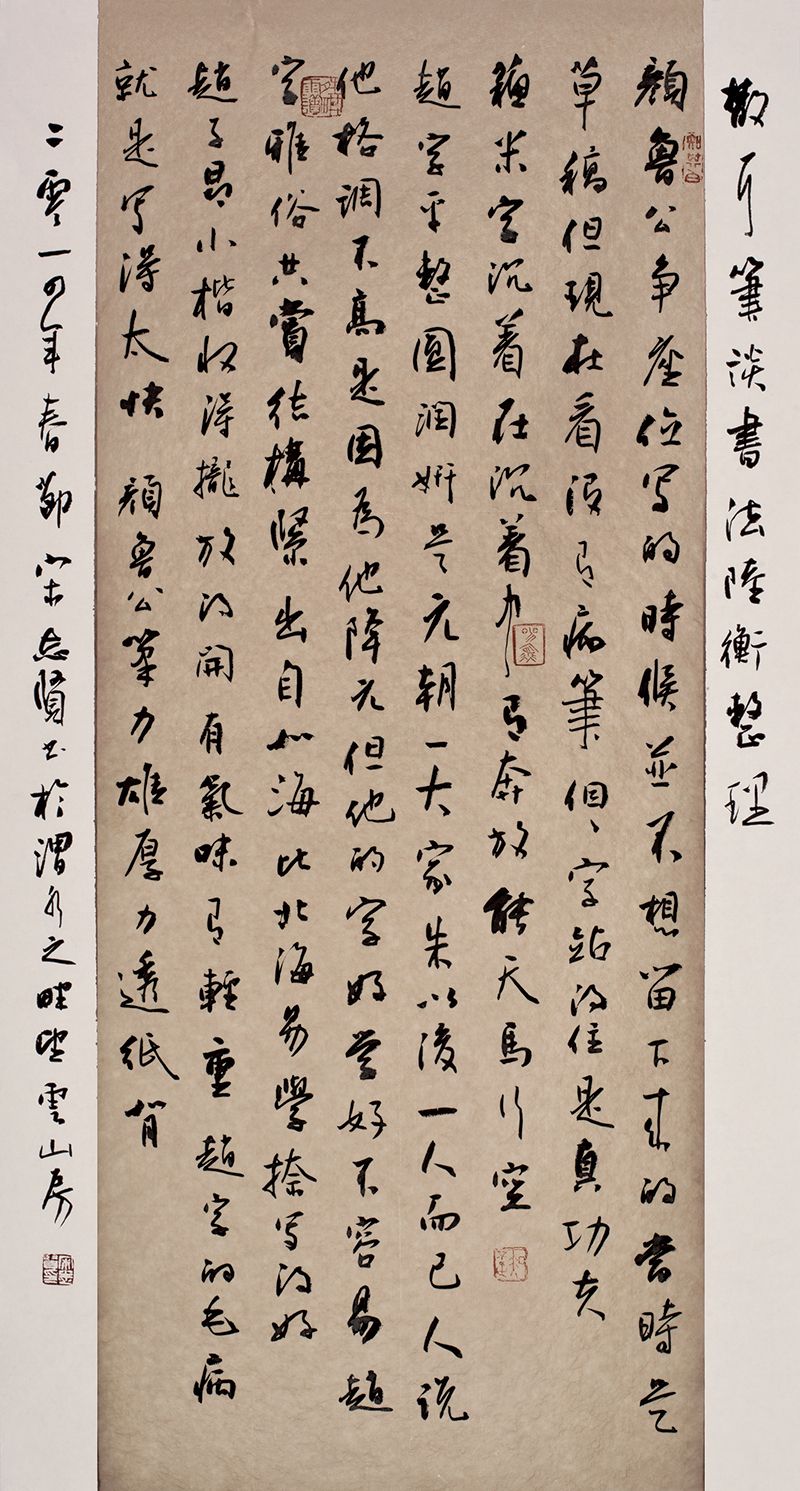 散耳筆談書法陸衡整理
顏魯公争座位写的時候並不想留下来的當時是
草稿但現在看沒有病筆個々字站得住是真功夫
蘇米字沉着在沉着中有奔放能天馬行空
趙字平整圆潤妍是元朝一大家朱以後一人而已人説
他格調不高是因為他降元但他的字好學好不容易趙
字雅俗共賞结構緊出自北海比北海易學捺写得好
趙子昂小楷收得攏放得開有氣味有輕重趙字的毛病
就是写得太快 顏魯公筆力雄厚力透纸背
二零一四年春節宋志賢书於渭水之畔望雲山房